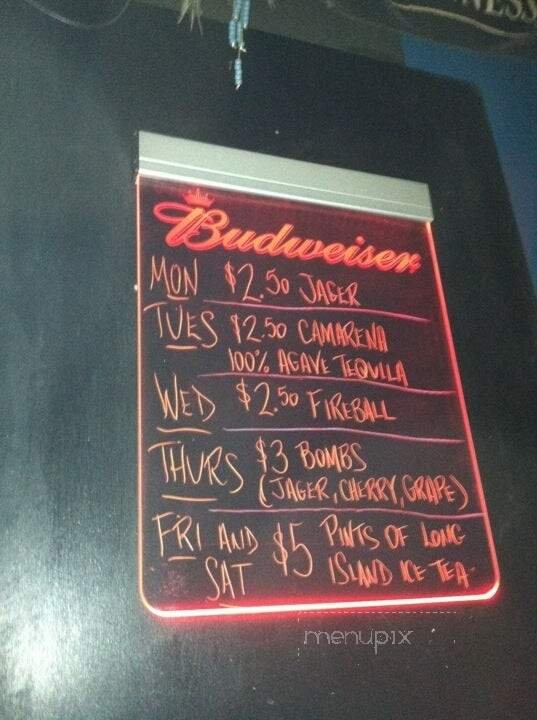 NESS
Budweiser
MON $2.50 JAGER
TUES $2.50 CAMARENA
100% AGAVE TEQUILA
WED $2.50 FIREBALL
THURS $3 BOMBS
(JAGER, CHERRY, GRAPE)
FRI AND SAT $5 PINTS OF LONG
ISLAND ICE TEA
menupix